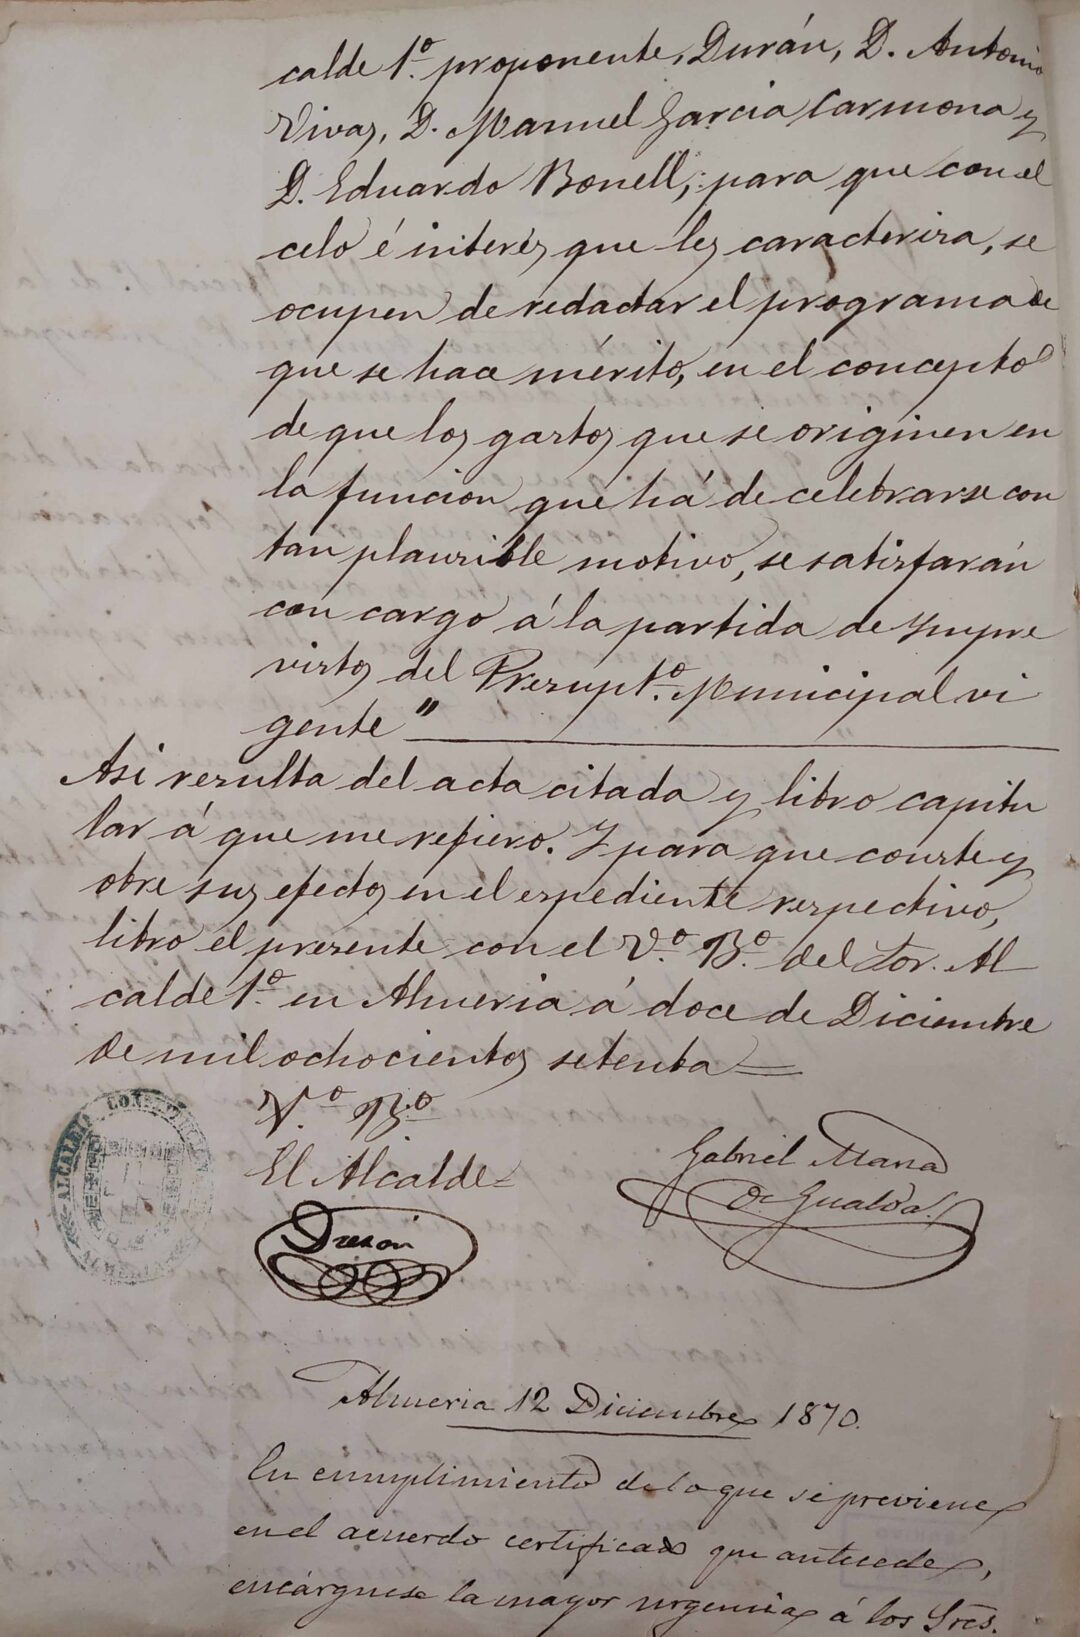 calde 1º. proponente, Durán, D. Antonio
Vivas, D. Manuel Garcia Carmona y
D. Eduardo Bonell; para que con el
celo é interés que les caracteriza, se
ocupen de redactar el programa de
que se hace mérito, en el concepto
de que los gastos que se originen en
la funcion que há de celebrarse con
tan plausible motivo, se satisfarán
con cargo á la partida de Ympre
vistos del Presupto. Municipal vi
gente"
Asi resulta del acta citada y libro capitu
lar á que me refiero. Y para que conste y
obre sus efectos en el espediente respectivo,
libro el presente con el Vº. Bº. del Sor. Al
calde 1º. en Almeria á doce de Diciembre
de mil ochocientos setenta=
Vº. Bº.
El Alcalde
ALCALDIA CONSTITUCIONAL
ALMERIA
Gabriel Maria
de Gualda.
Almeria 12 Diciembre 1870.
En cumplimiento de lo que se previene
en el acuerdo certificado que antecede,
encárguese la mayor urgencia á los Sres.